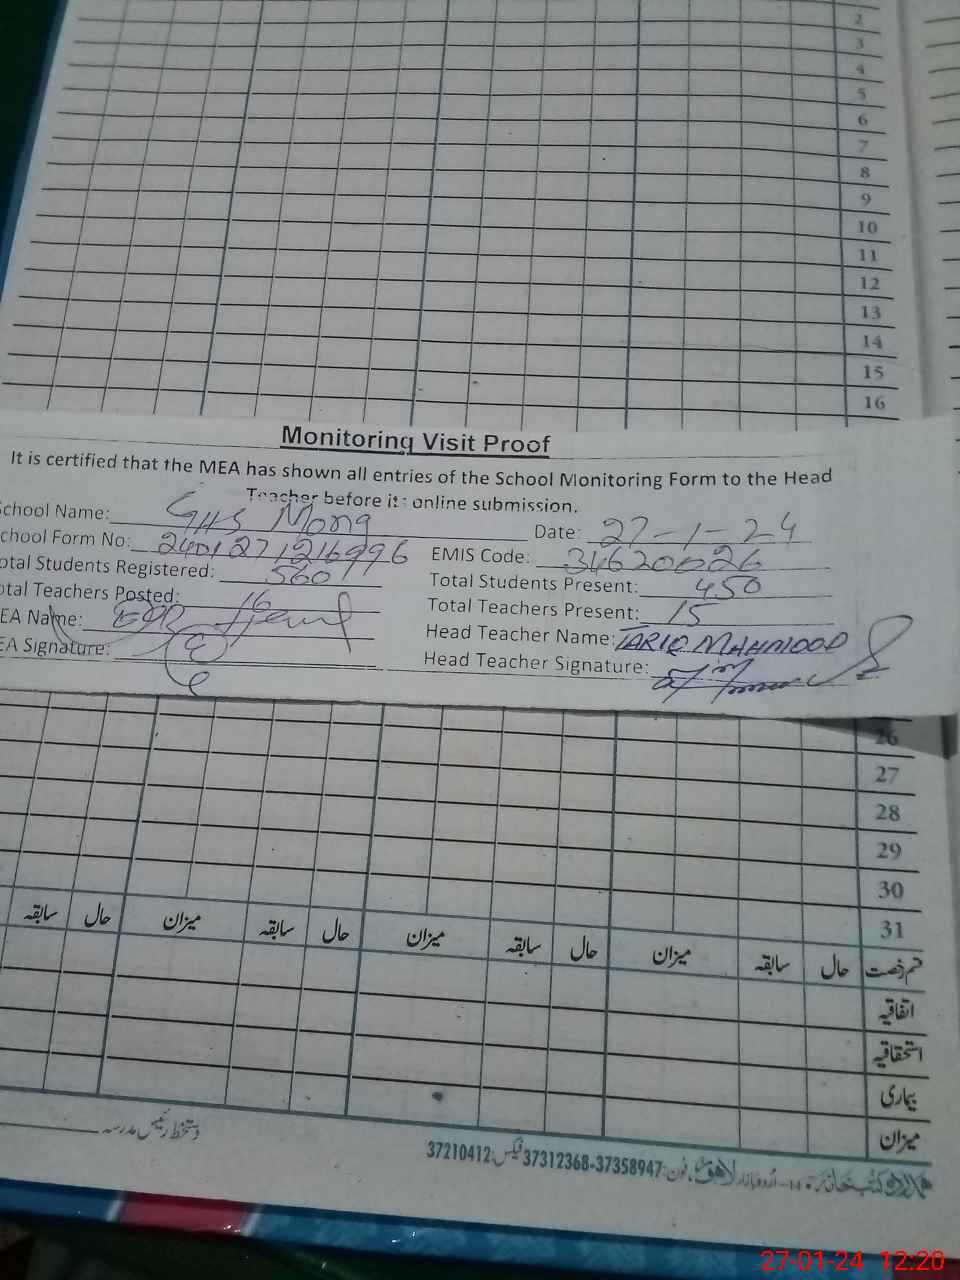 2
3
4
5
6
7
8
9
10
11
12
13
14
15
16
Monitoring Visit Proof
It is certified that the MEA has shown all entries of the School Monitoring Form to the Head
Teacher before its online submission.
School Name: GHS Mong Date: 27-1-24
School Form No: 2401271216996 EMIS Code: 34620026
Total Students Registered: 560 Total Students Present: 450
Total Teachers Posted: 16 Total Teachers Present: 15
MEA Name: Head Teacher Name: TARIQ MAHMOOD
MEA Signature: Head Teacher Signature:
26
27
28
29
30
31
قسم رخصت حال سابقہ میزان حال سابقہ میزان حال سابقہ میزان حال سابقہ
اتفاقیہ
استحقاقیہ
بیماری
میزان
دستخط رئیس مدرسہ
اردو بازار لاہور، فون: 37358947-37312368 فیکس: 37210412
27-01-24 12:20